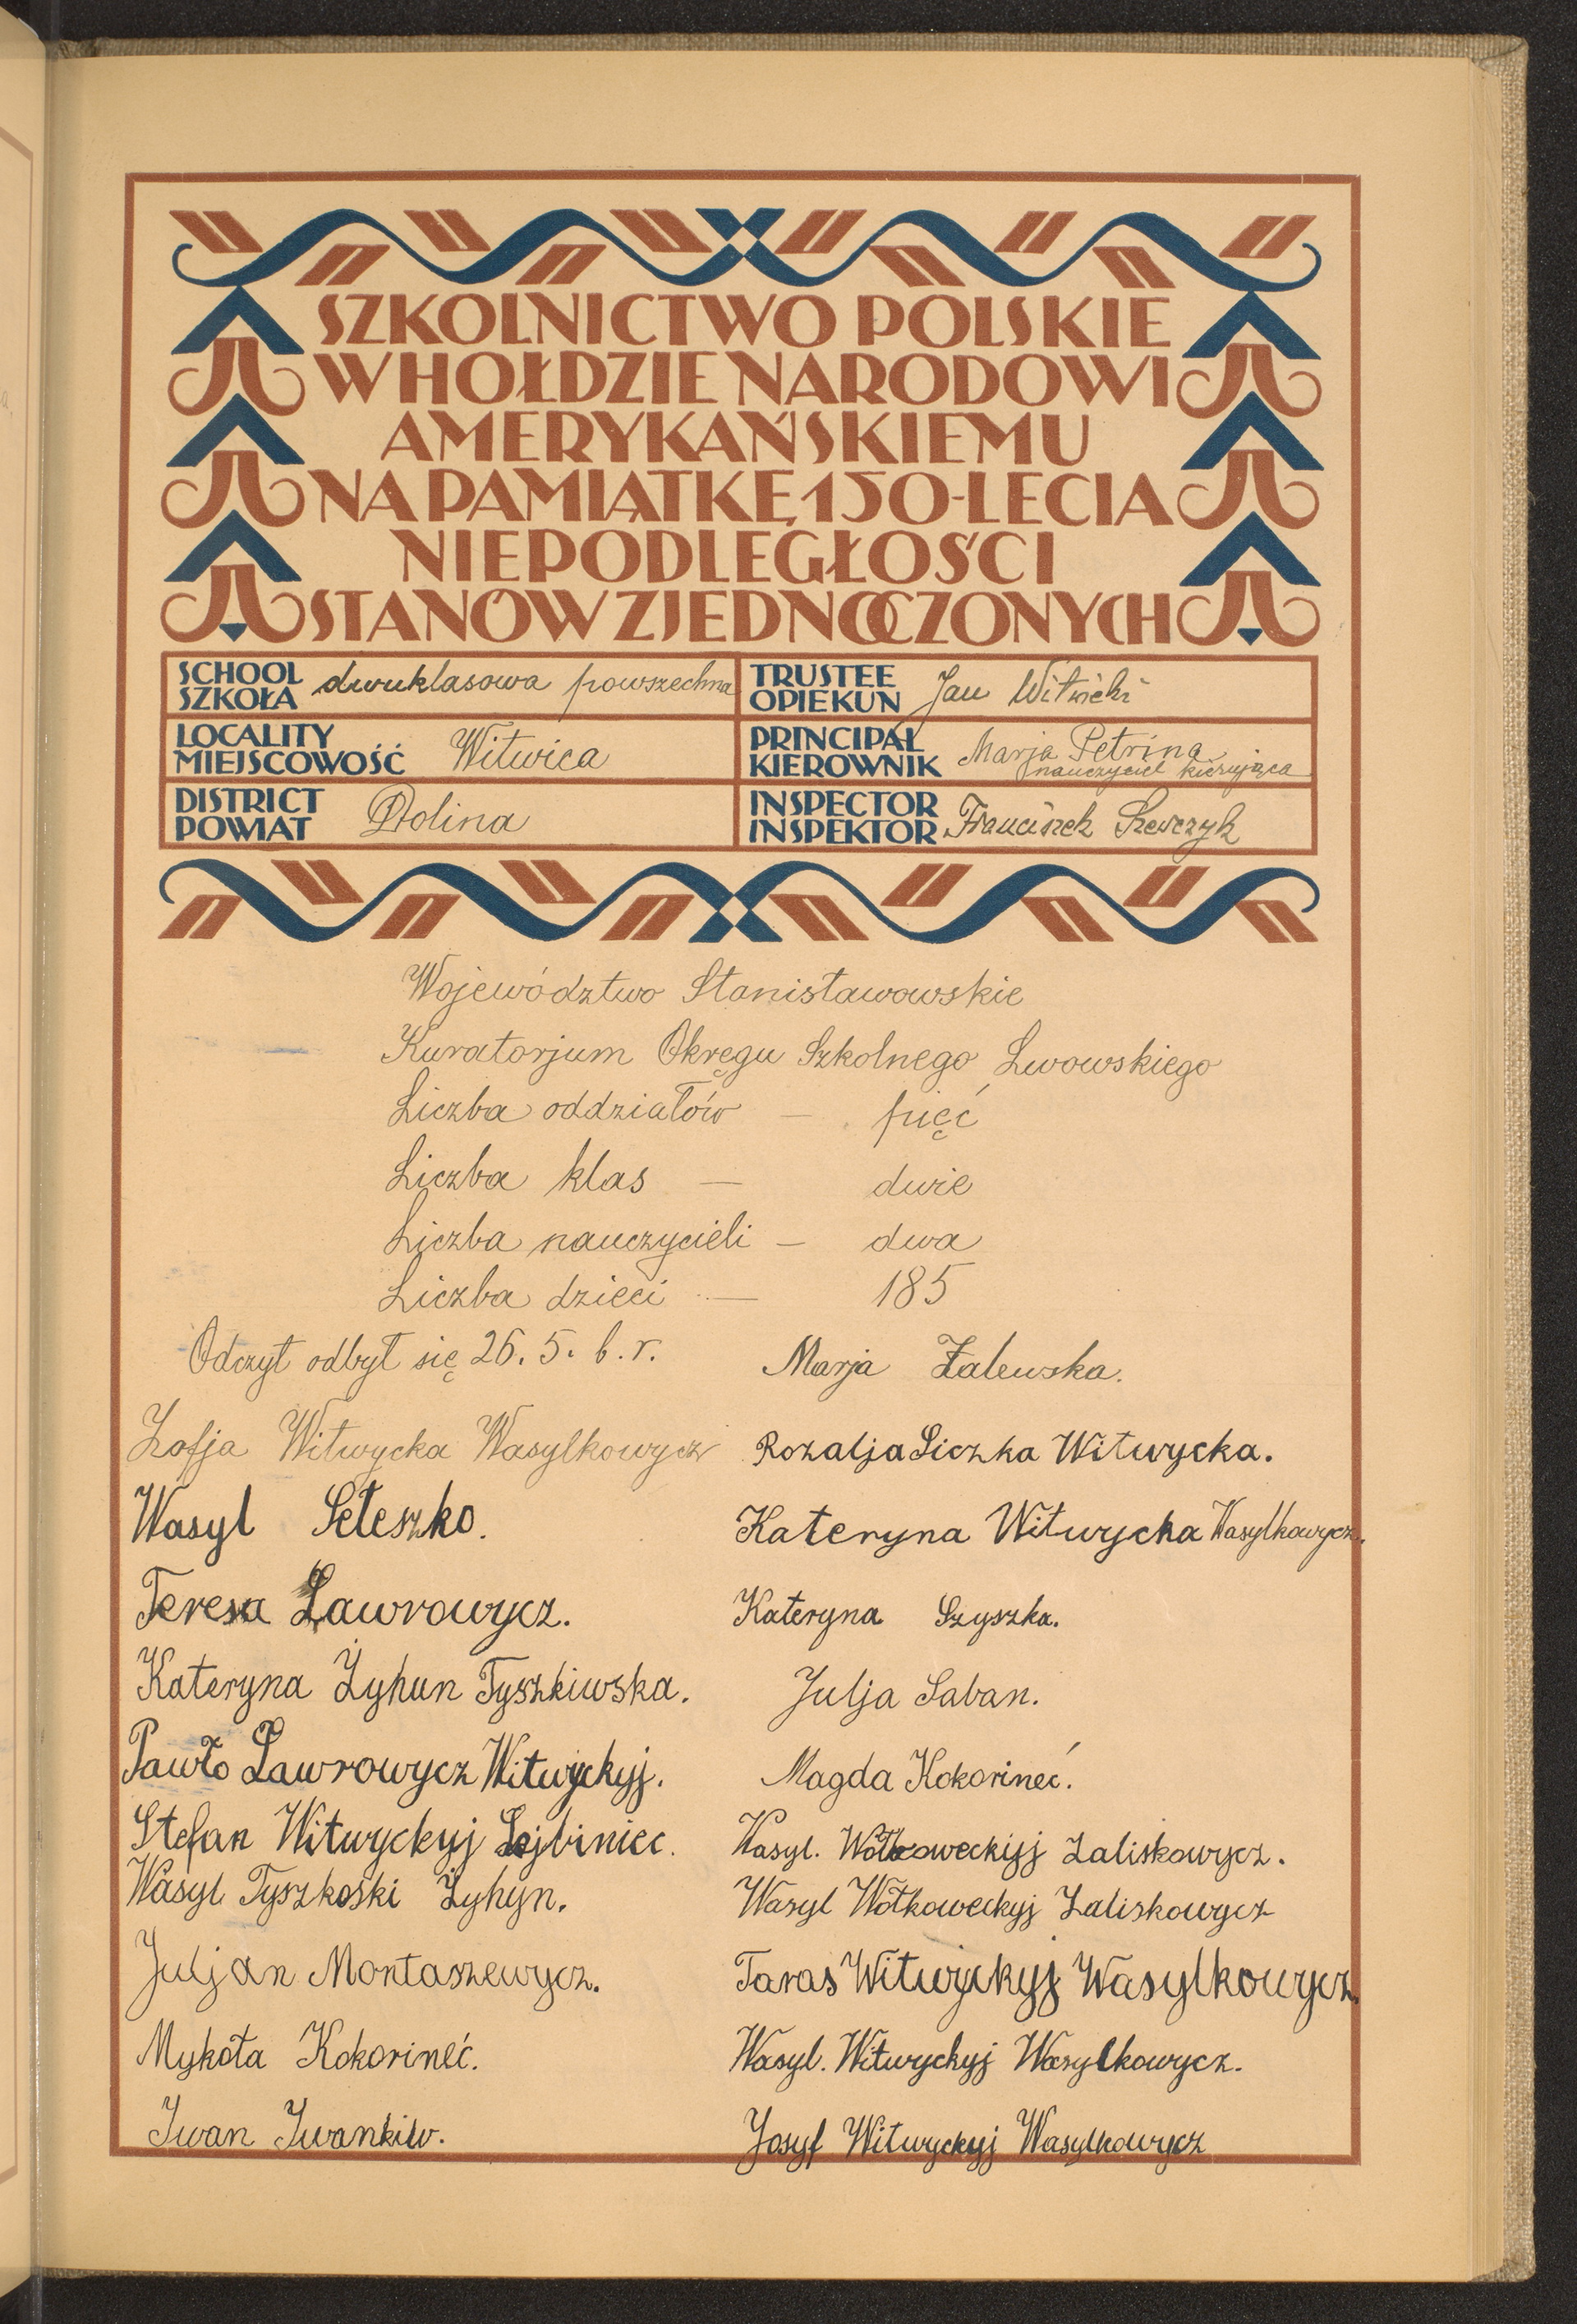 SZKOLNICTWO POLSKIE
W HOŁDZIE NARODOWI
AMERYKAŃSKIEMU
NA PAMIĄTKĘ 150-LECIA
NIEPODLEGŁOŚCI
STANÓW ZJEDNOCZONYCH
SCHOOL
SZKOŁA dwuklasowa powszechna
TRUSTEE
OPIEKUN Jan Witwicki
LOCALITY
MIEJSCOWOŚĆ Witwica
PRINCIPAL
KIEROWNIK Marja Petrina
nauczyciel kierująca
DISTRICT
POWIAT Dolina
INSPECTOR
INSPEKTOR Franciszek Szewczyk
Województwo Stanisławowskie
Kuratorjum Okręgu Szkolnego Lwowskiego
Liczba oddziałów — pięć
Liczba klas — dwie
Liczba nauczycieli — dwa
Liczba dzieci — 185
Odczyt odbył się 26. 5. b. r.
Marja Zalewska.
Zofja Witwycka Wasylkowycz
Rozalja Liczka Witwycka.
Wasyl Seleszko.
Kateryna Witwycka Wasylkowycz.
Teresa Lawrowycz.
Kateryna Szyszka.
Kateryna Żyhun Tyszkiwska.
Julja Saban.
Pawło Lawrowycz Witwyckyj.
Magda Kokorineć.
Stefan Witwyckyj Lejbiniec.
Wasyl. Wołkoweckyj Zaliskowycz.
Wasyl Tyszkoski Żyhyn.
Wasyl Wołkoweckyj Zaliskowycz
Juljan Montaszewycz.
Taras Witwyckyj Wasylkowycz.
Mykoła Kokorineć.
Wasyl. Witwyckyj Wasylkowycz.
Iwan Iwankiw.
Josyf Witwyckyj Wasylkowycz